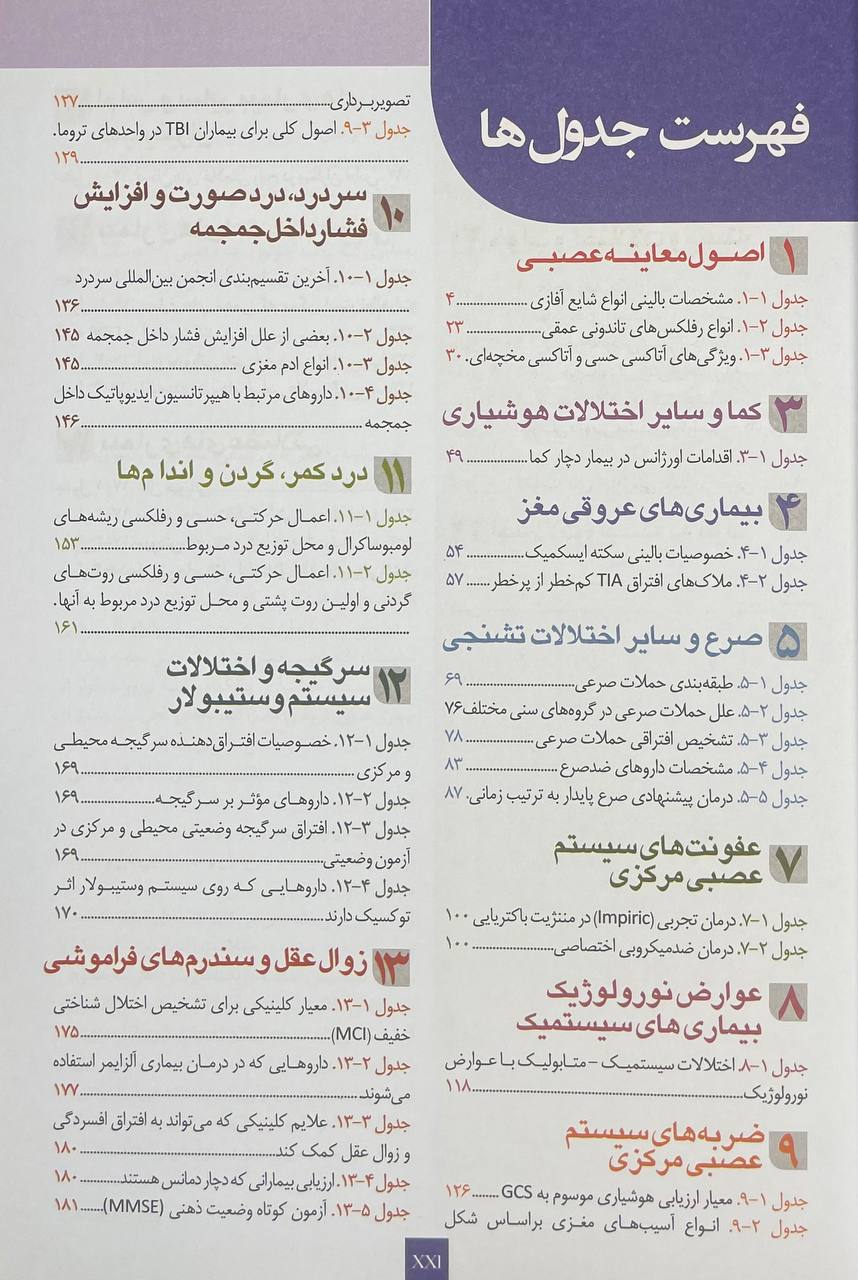 فهرست جدول‌ها
۱ اصول معاینه عصبی
جدول ۱-۱. مشخصات بالینی انواع شایع آفازی ........................ ۴
جدول ۲-۱. انواع رفلکس‌های تاندونی عمقی ........................ ۲۳
جدول ۳-۱. ویژگی‌های آتاکسی حسی و آتاکسی مخچه‌ای. ۳۰
۳ کما و سایر اختلالات هوشیاری
جدول ۱-۳. اقدامات اورژانس در بیمار دچار کما ................ ۴۹
۴ بیماری‌های عروقی مغز
جدول ۱-۴. خصوصیات بالینی سکته ایسکمیک ................ ۵۴
جدول ۲-۴. ملاک‌های افتراق TIA کم‌خطر از پرخطر ....... ۵۷
۵ صرع و سایر اختلالات تشنجی
جدول ۱-۵. طبقه‌بندی حملات صرعی ........................ ۶۹
جدول ۲-۵. علل حملات صرعی در گروه‌های سنی مختلف ۷۶
جدول ۳-۵. تشخیص افتراقی حملات صرعی ................ ۷۸
جدول ۴-۵. مشخصات داروهای ضدصرع ........................ ۸۳
جدول ۵-۵. درمان پیشنهادی صرع پایدار به ترتیب زمانی. ۸۷
۷ عفونت‌های سیستم
عصبی مرکزی
جدول ۱-۷. درمان تجربی (Impiric) در مننژیت باکتریایی ۱۰۰
جدول ۲-۷. درمان ضدمیکروبی اختصاصی ................ ۱۰۰
۸ عوارض نورولوژیک
بیماری های سیستمیک
جدول ۱-۸. اختلالات سیستمیک – متابولیک با عوارض
نورولوژیک ................................................ ۱۱۸
۹ ضربه‌های سیستم
عصبی مرکزی
جدول ۱-۹. معیار ارزیابی هوشیاری موسوم به GCS ........ ۱۲۶
جدول ۲-۹. انواع آسیب‌های مغزی براساس شکل
تصویربرداری ................................................ ۱۲۷
جدول ۳-۹. اصول کلی برای بیماران TBI در واحدهای تروما.
................................................ ۱۲۹
۱۰ سردرد، درد صورت و افزایش
فشار داخل جمجمه
جدول ۱-۱۰. آخرین تقسیم‌بندی انجمن بین‌المللی سردرد
................................................ ۱۳۶
جدول ۲-۱۰. بعضی از علل افزایش فشار داخل جمجمه ۱۴۵
جدول ۳-۱۰. انواع ادم مغزی ................................ ۱۴۵
جدول ۴-۱۰. داروهای مرتبط با هیپرتانسیون ایدیوپاتیک داخل
جمجمه ................................................ ۱۴۶
۱۱ درد کمر، گردن و اندا م‌ها
جدول ۱-۱۱. اعمال حرکتی، حسی و رفلکسی ریشه‌های
لومبوساکرال و محل توزیع درد مربوط ................ ۱۵۳
جدول ۲-۱۱. اعمال حرکتی، حسی و رفلکسی روت‌های
گردنی و اولین روت پشتی و محل توزیع درد مربوط به آنها.
................................................ ۱۶۱
۱۲ سرگیجه و اختلالات
سیستم وستیبولار
جدول ۱-۱۲. خصوصیات افتراق‌دهنده سرگیجه محیطی
و مرکزی ................................................ ۱۶۹
جدول ۲-۱۲. داروهای مؤثر بر سرگیجه ................ ۱۶۹
جدول ۳-۱۲. افتراق سرگیجه وضعیتی محیطی و مرکزی در
آزمون وضعیتی ........................................ ۱۶۹
جدول ۴-۱۲. داروهایی که روی سیستم وستیبولار اثر
توکسیک دارند ........................................ ۱۷۰
۱۳ زوال عقل و سندرم‌های فراموشی
جدول ۱-۱۳. معیار کلینیکی برای تشخیص اختلال شناختی
خفیف (MCI) ........................................ ۱۷۵
جدول ۲-۱۳. داروهایی که در درمان بیماری آلزایمر استفاده
می‌شوند ................................................ ۱۷۷
جدول ۳-۱۳. علایم کلینیکی که می‌تواند به افتراق افسردگی
و زوال عقل کمک کند ................................ ۱۸۰
جدول ۴-۱۳. ارزیابی بیمارانی که دچار دمانس هستند ............ ۱۸۰
جدول ۵-۱۳. آزمون کوتاه وضعیت ذهنی (MMSE) ....... ۱۸۱
XXI